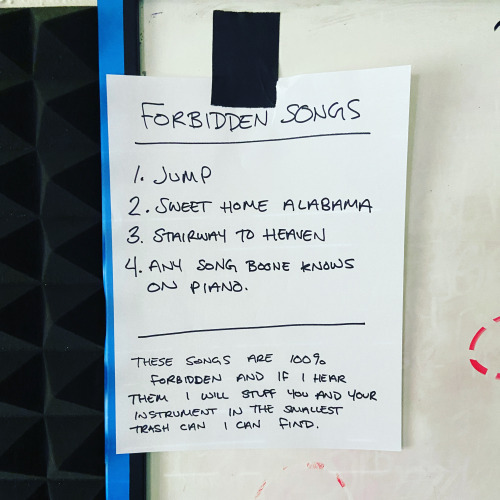 FORBIDDEN SONGS
1. JUMP
2. SWEET HOME ALABAMA
3. STAIRWAY TO HEAVEN
4. ANY SONG BOONE KNOWS
ON PIANO.
THESE SONGS ARE 100%
FORBIDDEN AND IF I HEAR
THEM I WILL STUFF YOU AND YOUR
INSTRUMENT IN THE SMALLEST
TRASH CAN I CAN FIND.